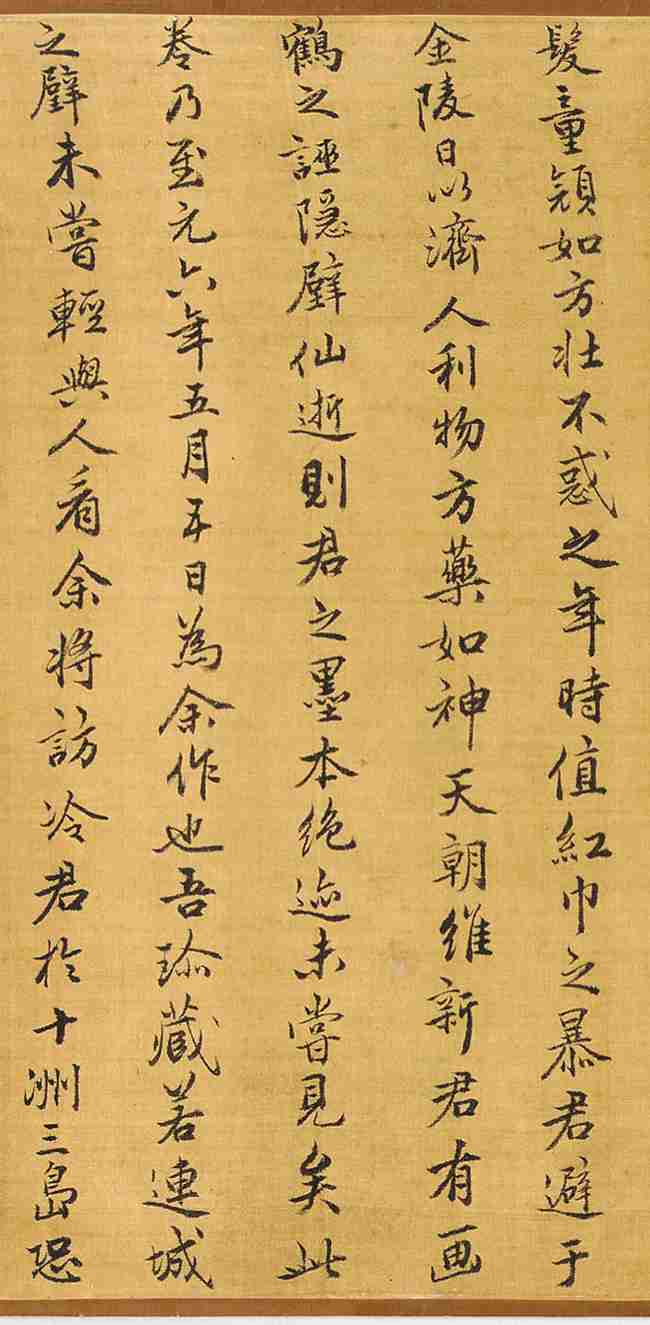 髮童顔如方壯不惑之年時值紅巾之暴君避于
金陵日以濟人利物方藥如神天朝維新君有画
鶴之誣隐壁仙逝則君之墨本絶迹未嘗見矣此
卷乃至元六年五月五日為余作也吾珎藏若連城
之璧未嘗輕與人看余將訪冷君於十洲三島恐